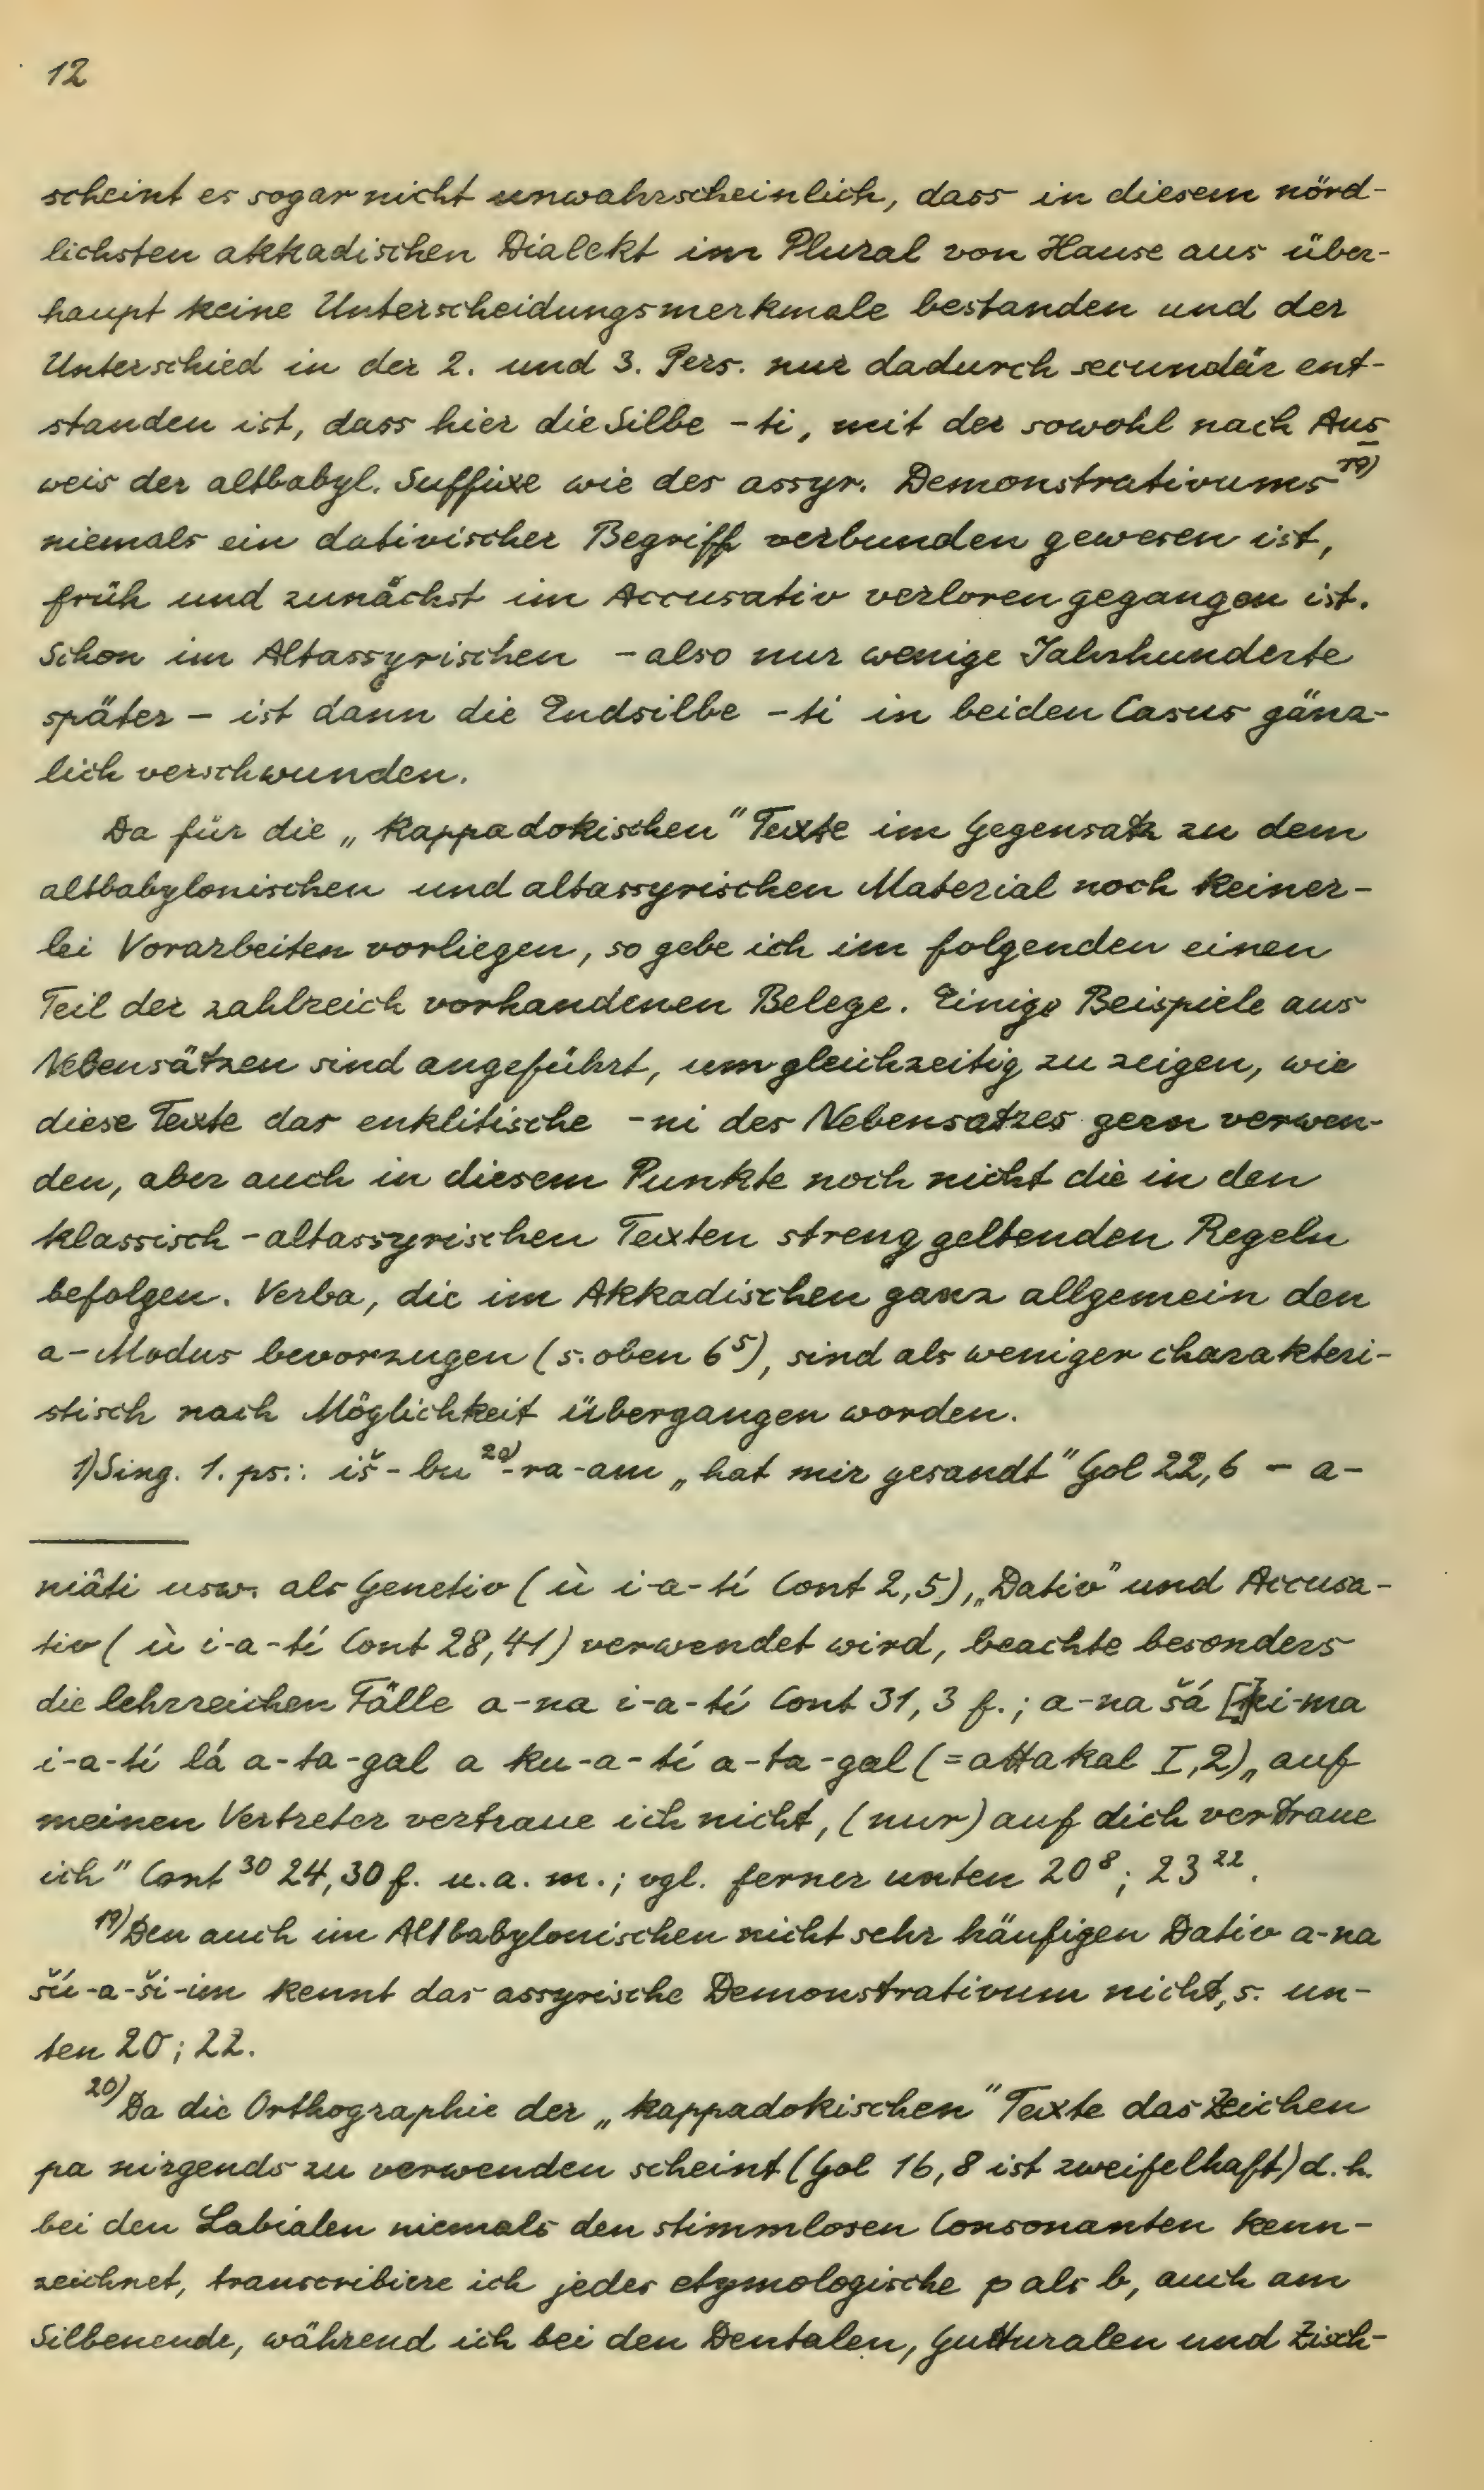 12
scheint es sogar nicht unwahrscheinlich, dass in diesem nörd-
lichsten akkadischen Dialekt im Plural von Hause aus über-
haupt keine Unterscheidungsmerkmale bestanden und der
Unterschied in der 2. und 3. Pers. nur dadurch secundär ent-
standen ist, dass hier die Silbe -ti, mit der sowohl nach Aus
weis der altbabyl. Suffixe wie des assyr. Demonstrativums ¹⁹⁾
niemals ein dativischer Begriff verbunden gewesen ist,
früh und zunächst im Accusativ verloren gegangen ist.
Schon im Altassyrischen - also nur wenige Jahrhunderte
später - ist dann die Endsilbe -ti in beiden Casus gänz-
lich verschwunden.
Da für die „kappadokischen" Texte im Gegensatz zu dem
altbabylonischen und altassyrischen Material noch keiner-
lei Vorarbeiten vorliegen, so gebe ich im folgenden einen
Teil der zahlreich vorhandenen Belege. Einige Beispiele aus
Nebensätzen sind angeführt, um gleichzeitig zu zeigen, wie
diese Texte das enklitische -ni des Nebensatzes gern verwen-
den, aber auch in diesem Punkte noch nicht die in den
klassisch-altassyrischen Texten streng geltenden Regeln
befolgen. Verba, die im Akkadischen ganz allgemein den
a-Modus bevorzugen (s. oben 6⁵), sind als weniger charakteri-
stisch nach Möglichkeit übergangen worden.
1) Sing. 1. ps.: iš-bu²⁰⁾-ra-am „hat mir gesandt" Gol 22,6 - a-
niâti usw. als Genetiv (ù i-a-tí Cont 2,5), „Dativ" und Accusa-
tiv (ù i-a-tí Cont 28,41) verwendet wird, beachte besonders
die lehrreichen Fälle a-na i-a-tí Cont 31,3 f.; a-na šá [k]i-ma
i-a-tí lá a-ta-gal a ku-a-tí a-ta-gal (=attakal I,2) „auf
meinen Vertreter vertraue ich nicht, (nur) auf dich vertraue
ich" Cont ³⁰ 24,30 f. u.a.m.; vgl. ferner unten 20⁸; 23²².
¹⁹⁾ Den auch im Altbabylonischen nicht sehr häufigen Dativ a-na
šú-a-ši-im kennt das assyrische Demonstrativum nicht, s. un-
ten 20; 22.
²⁰⁾ Da die Orthographie der „kappadokischen" Texte das Zeichen
pa nirgends zu verwenden scheint (Gol 16,8 ist zweifelhaft) d.h.
bei den Labialen niemals den stimmlosen Consonanten kenn-
zeichnet, transcribiere ich jedes etymologische p als b, auch am
Silbenende, während ich bei den Dentalen, Gutturalen und Zisch-